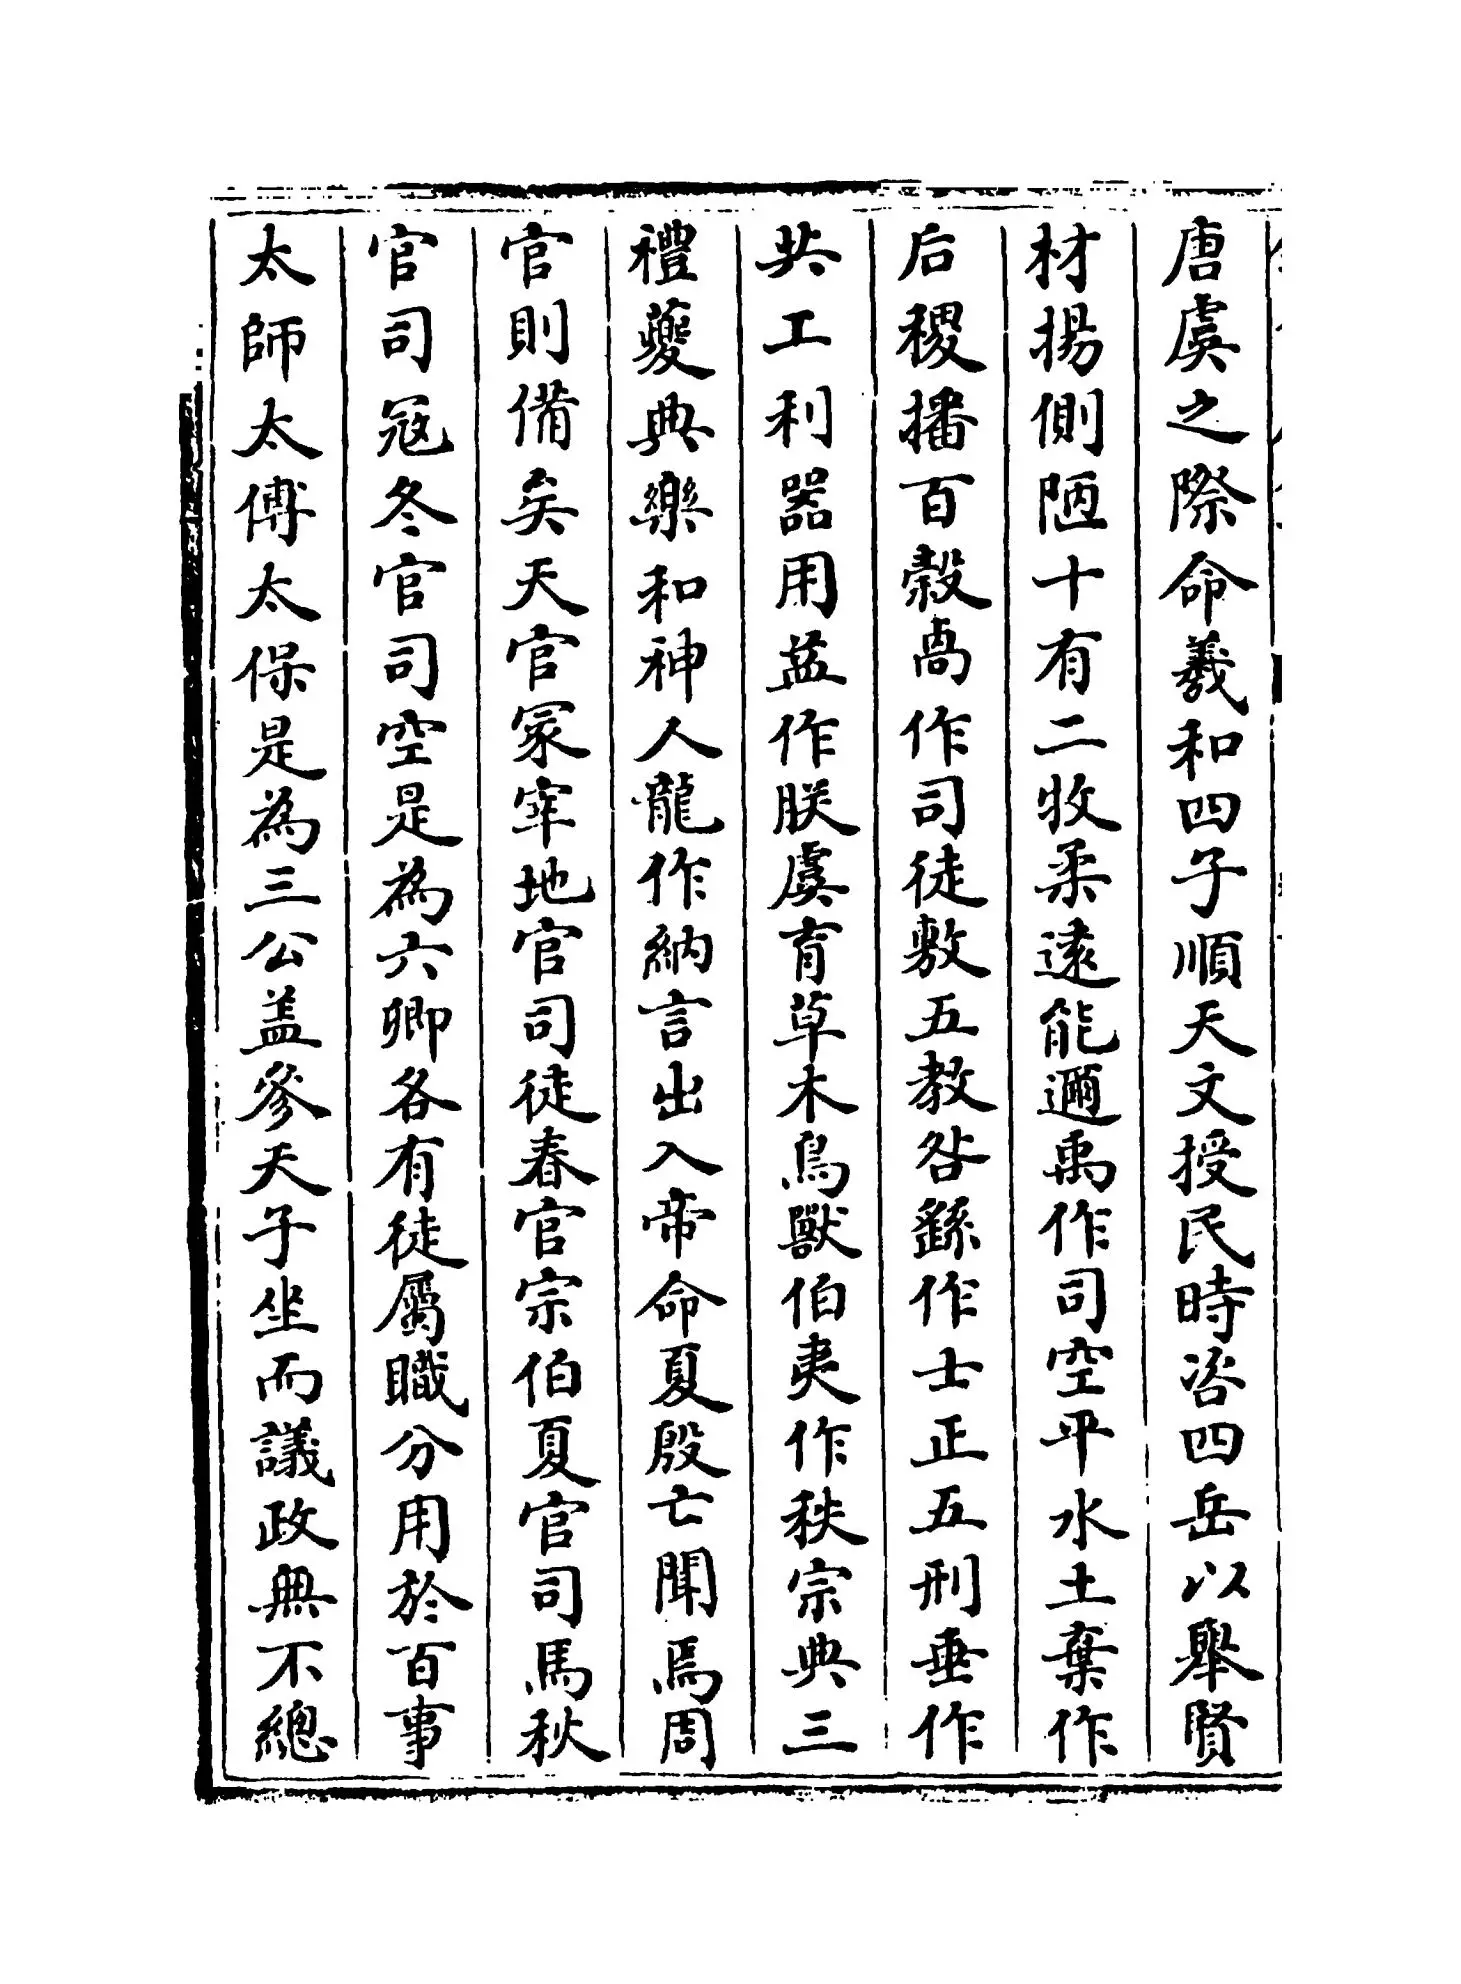 唐虞之際命羲和四子順天文授民時咨四岳以舉賢
材揚側陋十有二牧柔遠能邇禹作司空平水土棄作
后稷播百穀卨作司徒敷五教咎繇作士正五刑垂作
共工利器用益作朕虞育草木鳥獸伯夷作秩宗典三
禮夔典樂和神人龍作納言出入帝命夏殷亡聞焉周
官則備矣天官冢宰地官司徒春官宗伯夏官司馬秋
官司冦冬官司空是為六卿各有徒屬職分用於百事
太師太傅太保是為三公盖參天子坐而議政無不總